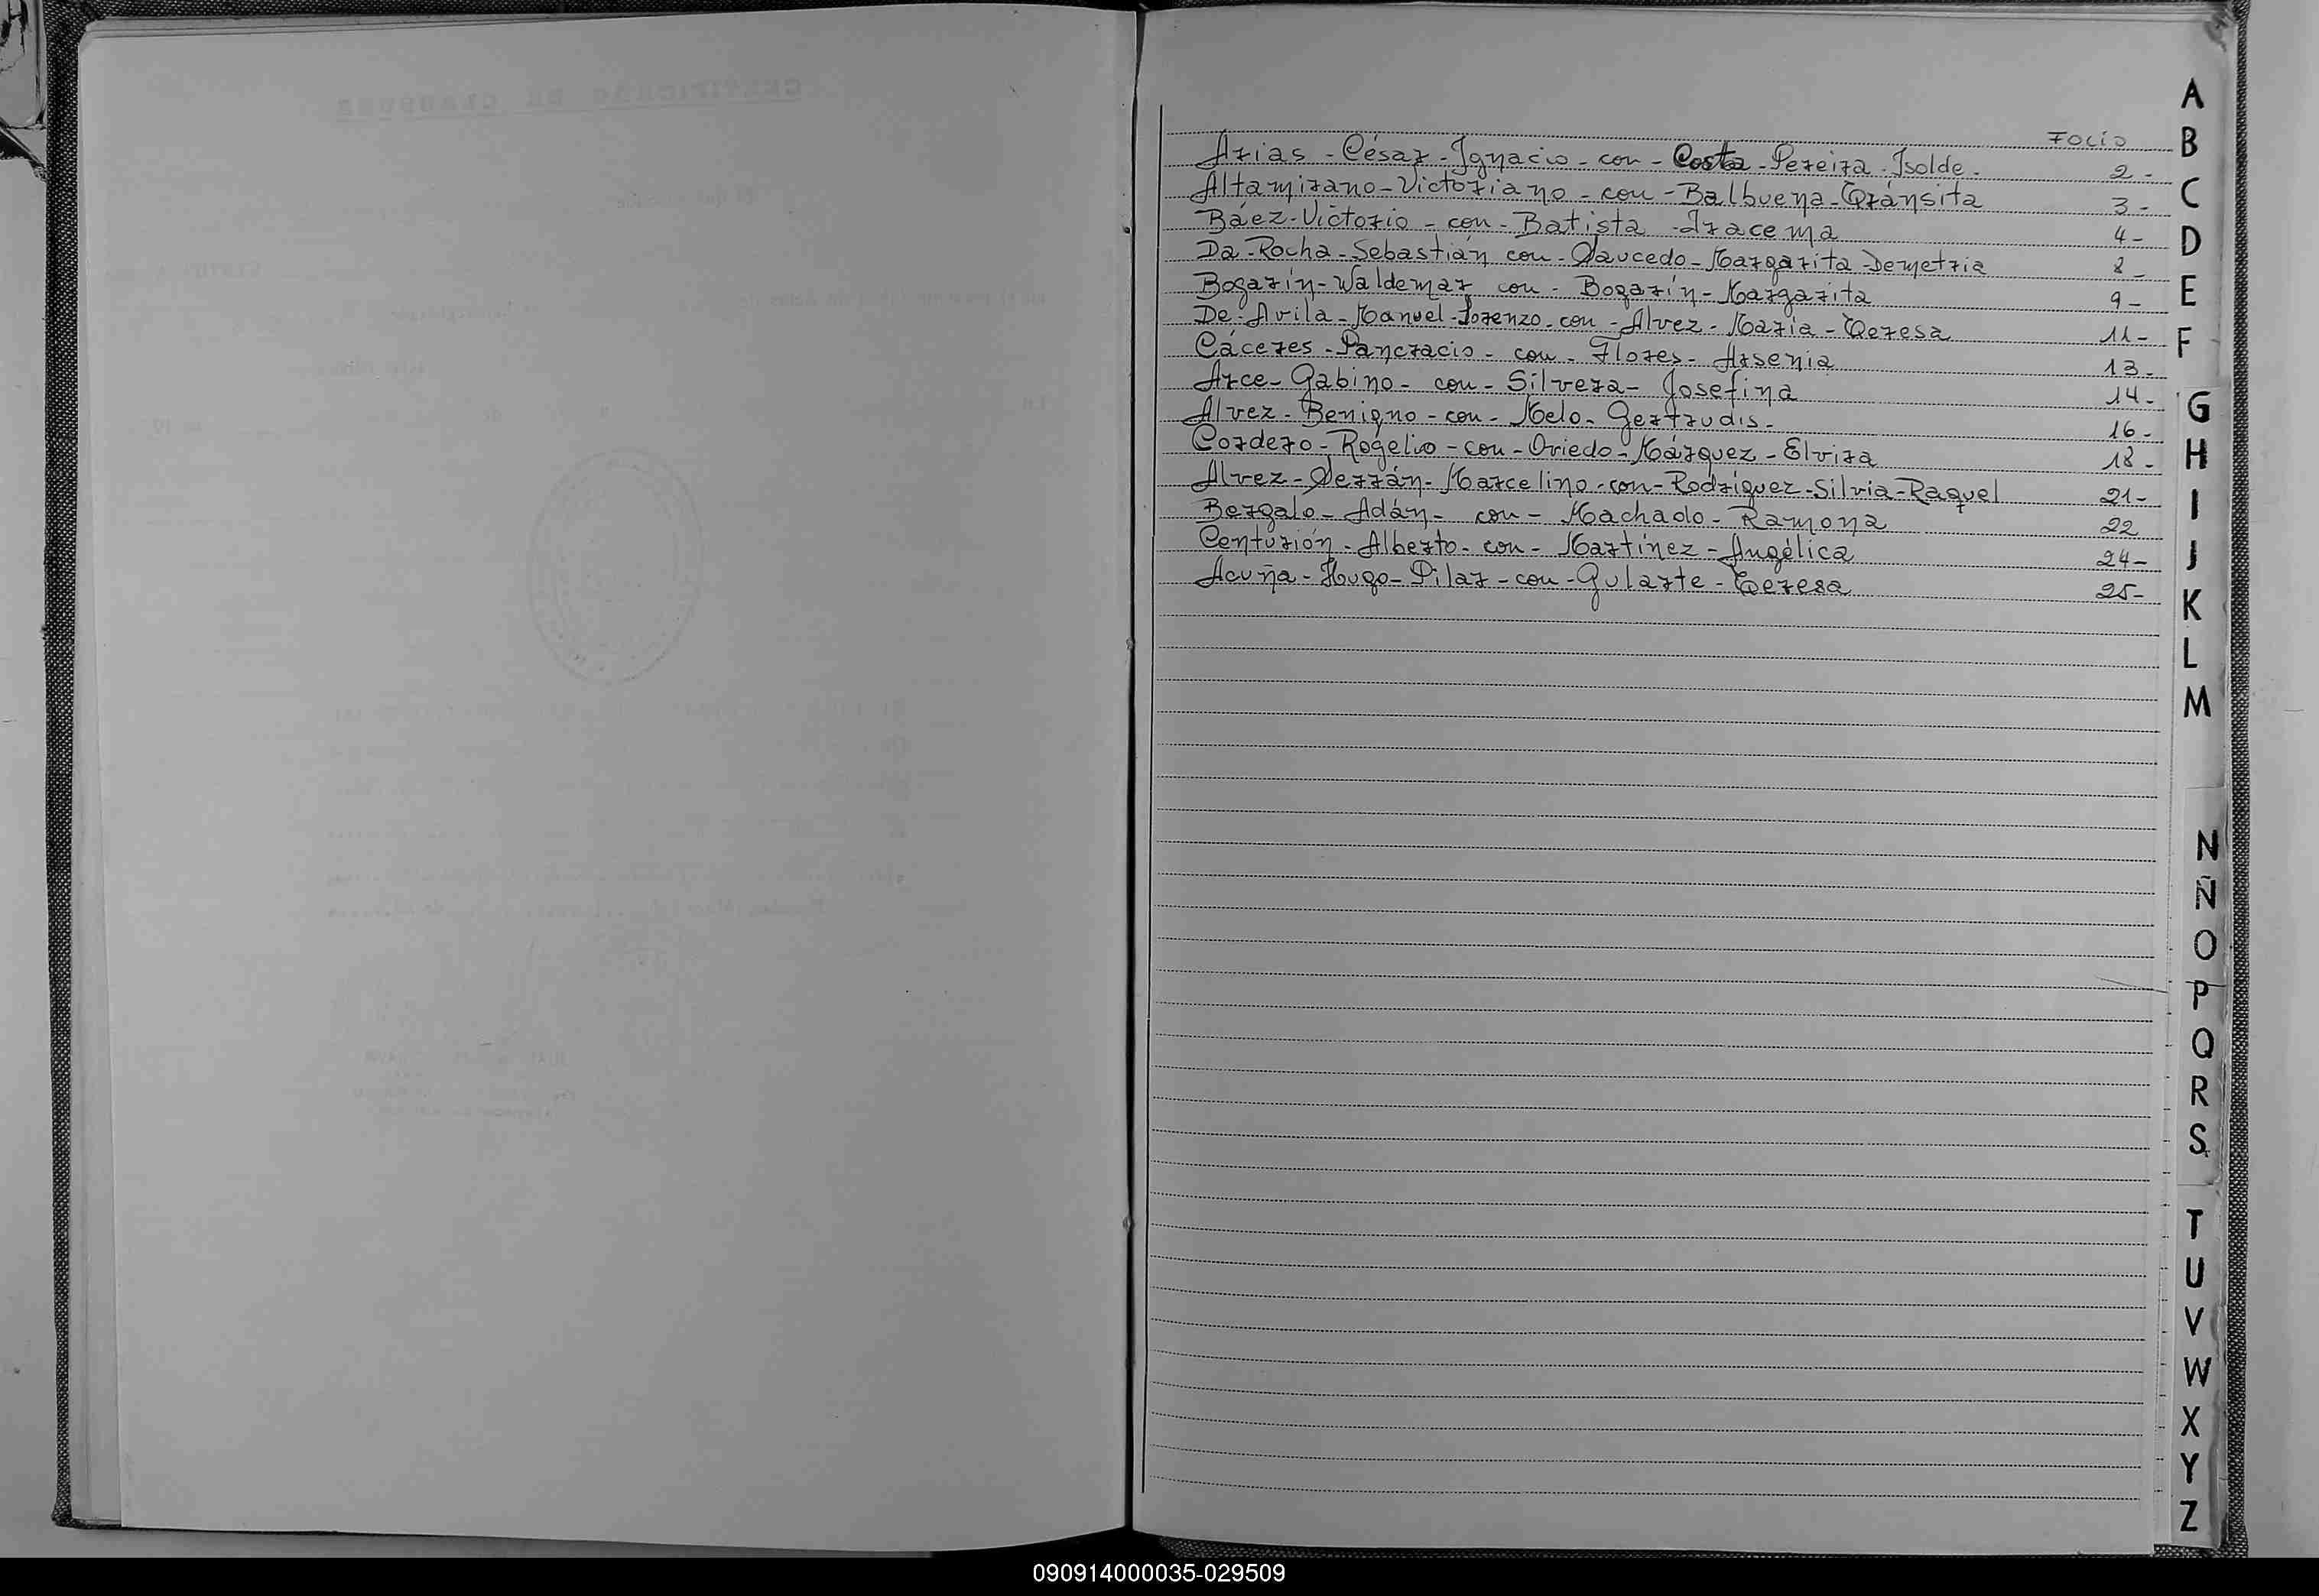 CERTIFICADO DE CLAUSURA
FOLIO
Arias - César - Ignacio - con - Costa - Pereira - Isolde - 2 -
Altamirano - Victoriano - con - Balbuena - Tránsita 3 -
Báez - Victorio - con - Batista - Iracema 4 -
Da - Rocha - Sebastián con - Saucedo - Margarita - Demetria 8 -
Bogarín - Waldemar con - Bogarín - Margarita 9 -
De - Avila - Manuel - Lorenzo - con - Alvez - María - Teresa 11 -
Cáceres - Pancracio - con - Flores - Arsenia 13 -
Arce - Gabino - con - Silvera - Josefina 14 -
Alvez - Benigno - con - Melo - Gertrudis - 16 -
Cordero - Rogelio - con - Oviedo - Márquez - Elvira 18 -
Alvez - Serrán - Marcelino - con - Rodríguez - Silvia - Raquel 21 -
Bergalo - Adán - con - Machado - Ramona 22
Centurión - Alberto - con - Martínez - Angélica 24 -
Acuña - Hugo - Pilar - con - Gularte - Teresa 25 -
A
B
C
D
E
F
G
H
I
J
K
L
M
N
Ñ
O
P
Q
R
S
T
U
V
W
X
Y
Z
090914000035-029509